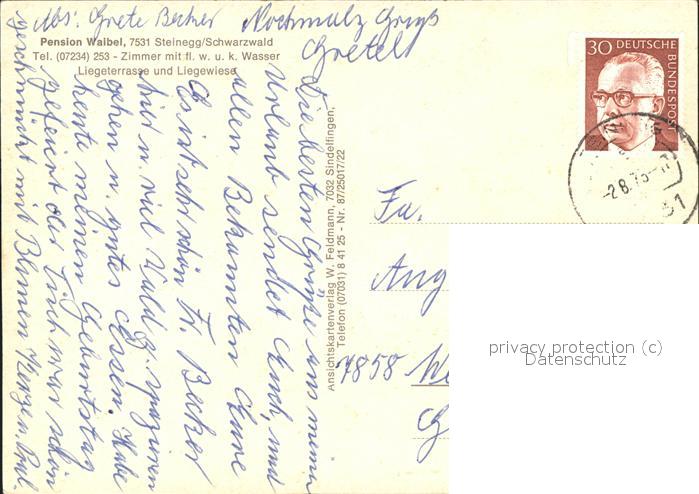 Abs. Grete Becker
Pension Waibel, 7531 Steinegg/Schwarzwald
Tel. (07234) 253 - Zimmer mit fl. w. u. k. Wasser
Liegeterrasse und Liegewiese
Nochmalz Gruß
Gretel
Die besten Grüße aus meinem
Urlaub sendet Euch, und
allen Bekannten Eure
Fr. Becker
Es ist sehr schön
hier u. viel Wald z. spazieren
gehen u. gutes Essen. Habe
heute meinen Geburtstag
gefeiert der Tisch war schön
geschmückt mit Blumen Kerze u.
Ansichtskartenverlag W. Feldmann, 7032 Sindelfingen,
Telefon (07031) 8 41 25 - Nr. 87/25017/22
30 DEUTSCHE
BUNDESPOST
-2.8.75-
Fa.
Ang
7858 We
privacy protection (c)
Datenschutz